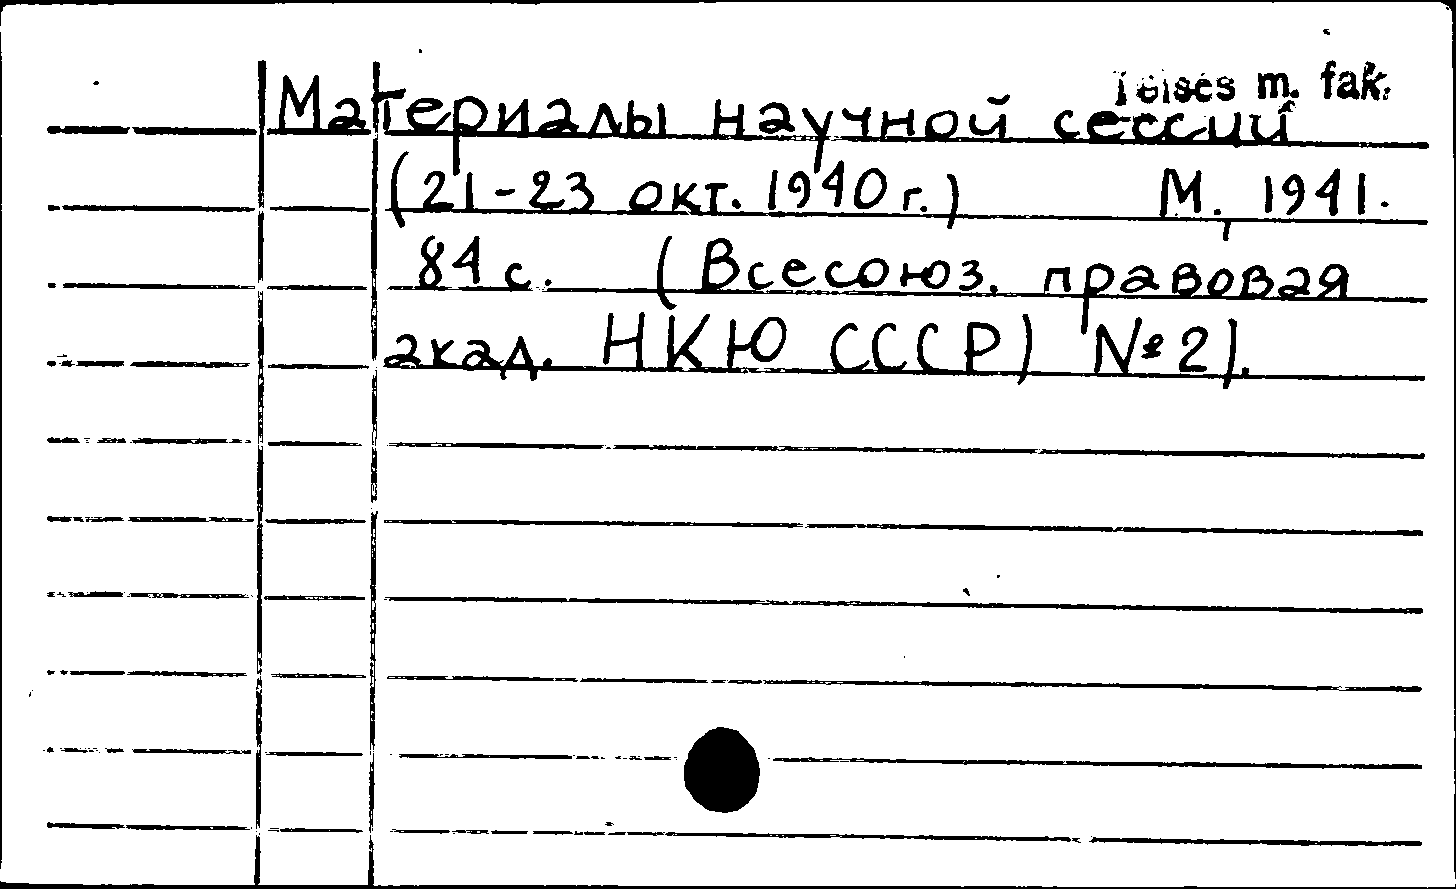 Teisės m. fak.
Материалы научной сессии
(21-23 окт. 1940 г.) М., 1941.
84 с. (Всесоюз. правовая
акад. НКЮ СССР) №2).